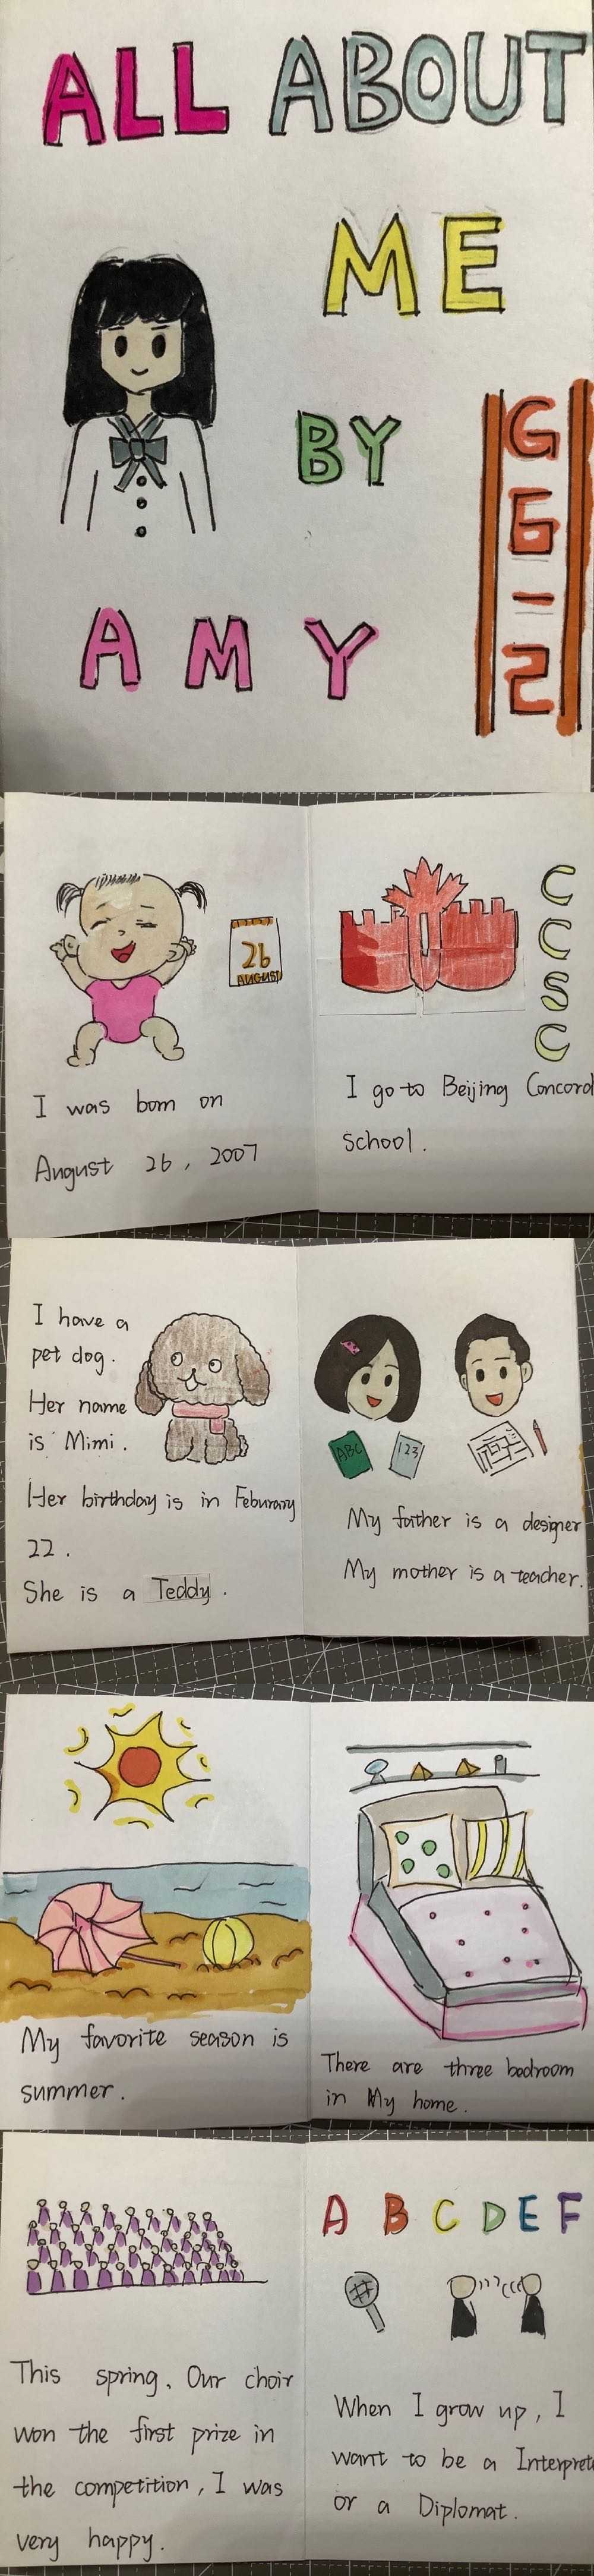 ALL ABOUT
ME
BY
AMY
G6-2
26
AUGUST
I was born on
August 26, 2007
CCSC
I go to Beijing Concord
school.
I have a
pet dog.
Her name
is Mimi.
Her birthday is in Feburary
22.
She is a Teddy.
ABC
123
My father is a designer
My mother is a teacher.
My favorite season is
summer.
There are three bedroom
in My home.
This spring, Our choir
won the first prize in
the competition, I was
very happy.
A B C D E F
When I grow up, I
want to be a Interprete
or a Diplomat.